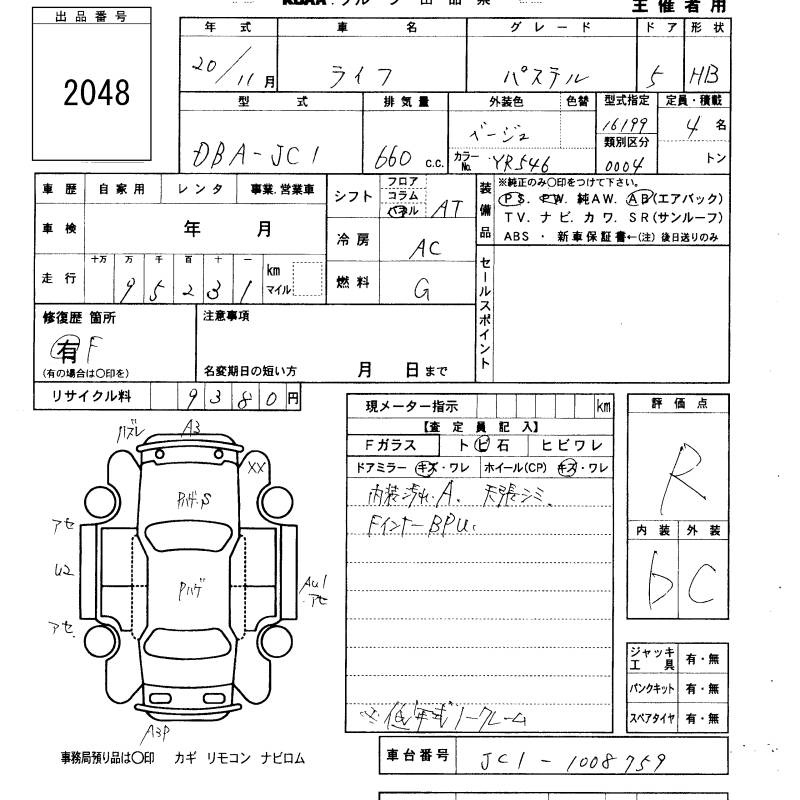 出品番号
2048
主催者用
年式 車名 グレード ドア 形状
20/11月 ライフ パステル 5 HB
型式 排気量 外装色 色替 型式指定 定員・積載
DBA-JC1 660 c.c. ベージュ 16199 4名
カラーNo. YR546 類別区分 0004 トン
車歴 自家用 レンタ 事業.営業車
シフト フロア コラム パネル AT
装備品 ※純正のみ○印をつけて下さい。
PS. PW. 純AW. AB(エアバック)
TV. ナビ. カワ. SR(サンルーフ)
ABS ・ 新車保証書←(注) 後日送りのみ
車検 年 月
冷房 AC
走行 十万 万 千 百 十 一 km マイル
9 5 2 3 1
燃料 G
セールスポイント
修復歴 箇所
有 F
(有の場合は○印を)
注意事項
名変期日の短い方 月 日まで
リサイクル料 9380円
現メーター指示 km
【査定員記入】
Fガラス ト ビ 石 ヒビワレ
ドアミラー キズ・ワレ ホイール(CP) キズ・ワレ
内装汚れA. 天張シミ.
Fインナー BPU.
※低年式ノークレーム
評価点
R
内装 外装
b C
ジャッキ工具 有・無
パンクキット 有・無
スペアタイヤ 有・無
ハズレ A3
XX
Pハゲ.S
アセ
U2
Pハゲ
AU1
アセ
アセ.
A3P
事務局預り品は○印 カギ リモコン ナビロム
車台番号 JC1-1008759